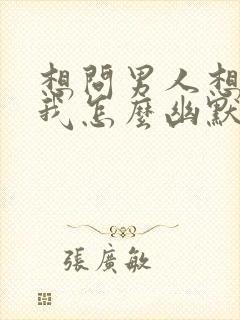 想問男人想
我怎麼幽默
張廣敏